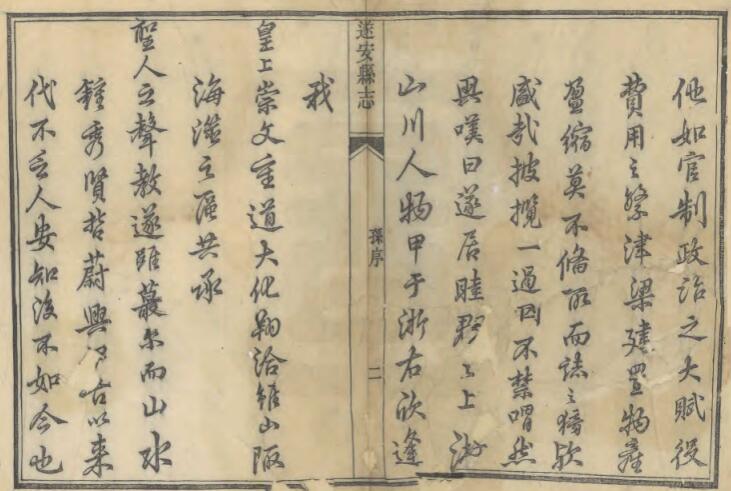 他如官制政治之大賦役
費用之繁津梁建置物產
盈縮莫不備取而誌之猗歟
盛哉披攬一過因不禁喟然
興嘆曰遂居睦郡之上游
山川人物甲于浙右欣逢
遂安縣志
孫序
二
我
皇上崇文重道大化翔洽雖山陬
海澨之區共承
聖人之聲教遂雖蕞尔而山水
鍾秀賢哲蔚興自古以来
代不乏人安知後不如今也